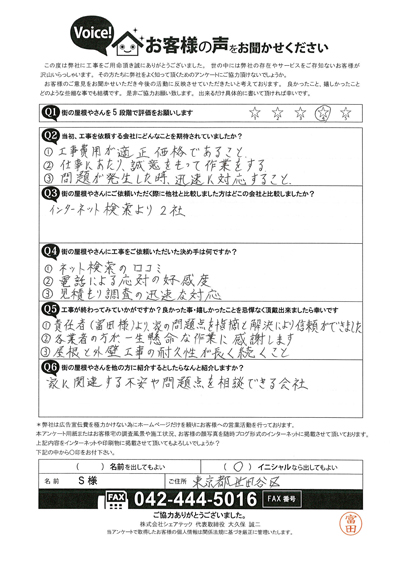 Voice!
お客様の声をお聞かせください
この度は弊社に工事をご用命頂き誠にありがとうございました。世の中には弊社の存在やサービスをご存知ないお客様が
沢山いらっしゃいます。その方たちに弊社をよく知って頂くためのアンケートにご協力頂けないでしょうか。
お客様のご意見をお聞かせいただき今後の活動に反映させていただきたいと考えております。良かったこと、嬉しかったこと
どのような些細な事でも結構です。是非ご協力お願い致します。出来るだけ具体的に書いて頂ければ幸いです。
Q1 街の屋根やさんを5段階で評価をお願いします
☆ ☆ ☆ ☆ ☆
Q2 当初、工事を依頼する会社にどんなことを期待されていましたか?
① 工事費用が適正価格であること
② 仕事にあたり、誠意をもって作業をする
③ 問題が発生した時、迅速に対応すること
Q3 街の屋根やさんにご依頼いただく際に他社と比較しました方はどこの会社と比較しましたか?
インターネット検索より2社
Q4 街の屋根やさんに工事をご依頼いただいた決め手は何ですか?
① ネット検索の口コミ
② 電話による応対の好感度
③ 見積もり調査の迅速な対応
Q5 工事が終わってみていかがですか?良かった事・嬉しかったことを忌憚なく頂戴出来ましたら幸いです
① 責任者(富田様)より、家の問題点を指摘と解決により信頼ができました
② 各業者の方が一生懸命な作業に感謝します
③ 屋根と外壁工事の耐久性が長く続くこと
Q6 街の屋根やさんを他の方に紹介するとしたらなんと紹介しますか?
家に関連する不安や問題点を相談できる会社
*弊社は広告宣伝費を極力かけない為にホームページだけを頼りにお客様への営業活動を行っております。
本アンケート用紙またはお客様宅の調査風景や施工状況、お客様の顔写真を随時ブログ形式のインターネットに掲載させて頂いております。
上記内容をインターネットや印刷物に掲載させて頂いてもよろしいでしょうか?
下記の中から〇印をお付け下さい。
( ) 名前を出してもよい ( 〇 ) イニシャルなら出してもよい
お名前 S 様 ご住所 東京都世田谷区
FAX 042-444-5016 FAX 番号
ご協力ありがとうございました。
株式会社シェアテック 代表取締役 大久保 誠二
当アンケートで取得したお客様の個人情報は関係法規に基づき厳正に管理いたします。
富田